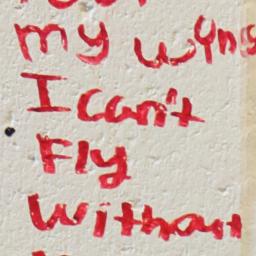 my wyngs
I can't
Fly
without